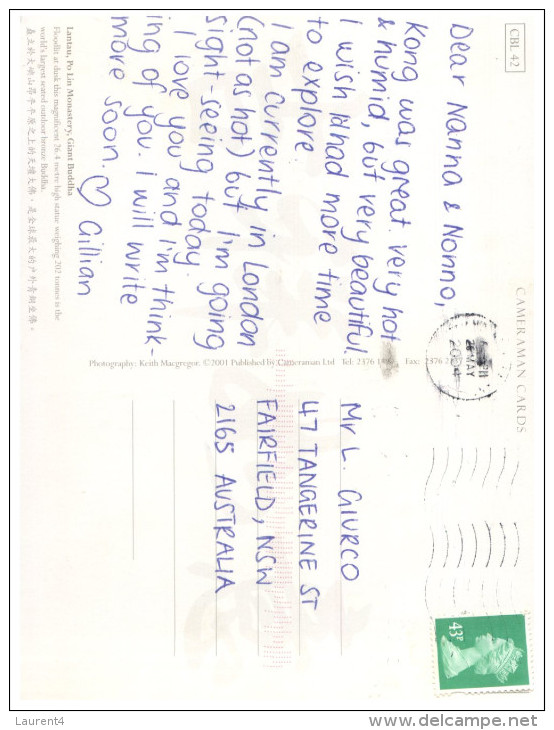 CBL 42
CAMERAMAN CARDS
Dear Nanna & Nonno,
Kong was great. very hot
& humid, but very beautiful.
I wish I had more time
to explore.
I am currently in London
(not as hot) but I'm going
sight-seeing today.
I love you and I'm think-
ing of you. I will write
more soon. ♡ Gillian
Lantau, Po Lin Monastery, Giant Buddha
Floodlit at dusk this magnificent 26.4 metre high statue weighing 202 tonnes is the
world's largest seated outdoor bronze Buddha.
Photography: Keith Macgregor. ©2001 Published by Cameraman Ltd Tel: 2376 Fax: 2376
MAY
Mr L. GIURCO
47 TANGERINE ST
FAIRFIELD, NSW
2165 AUSTRALIA
43P
Laurent4
www.delcampe.net